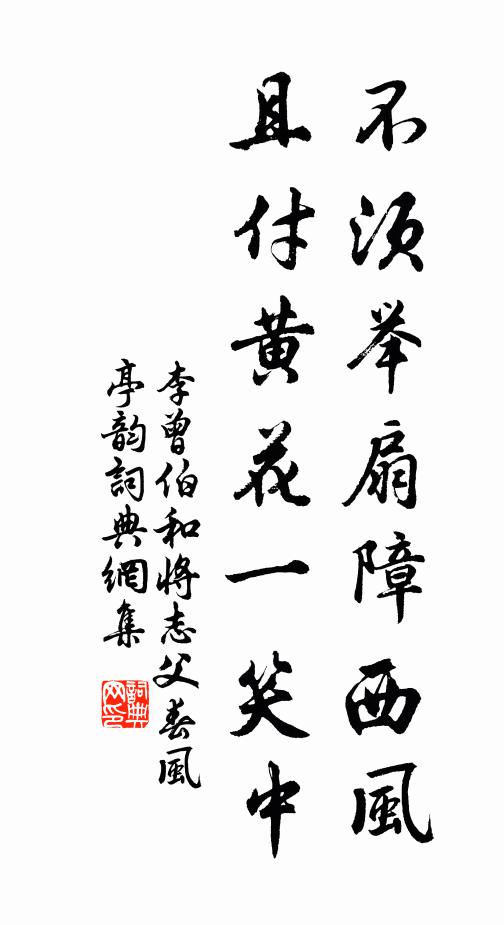 不须举扇障西風
且付黄花一笑中
李曾伯和将志父春風
亭韵詞典網集
詞典
网印